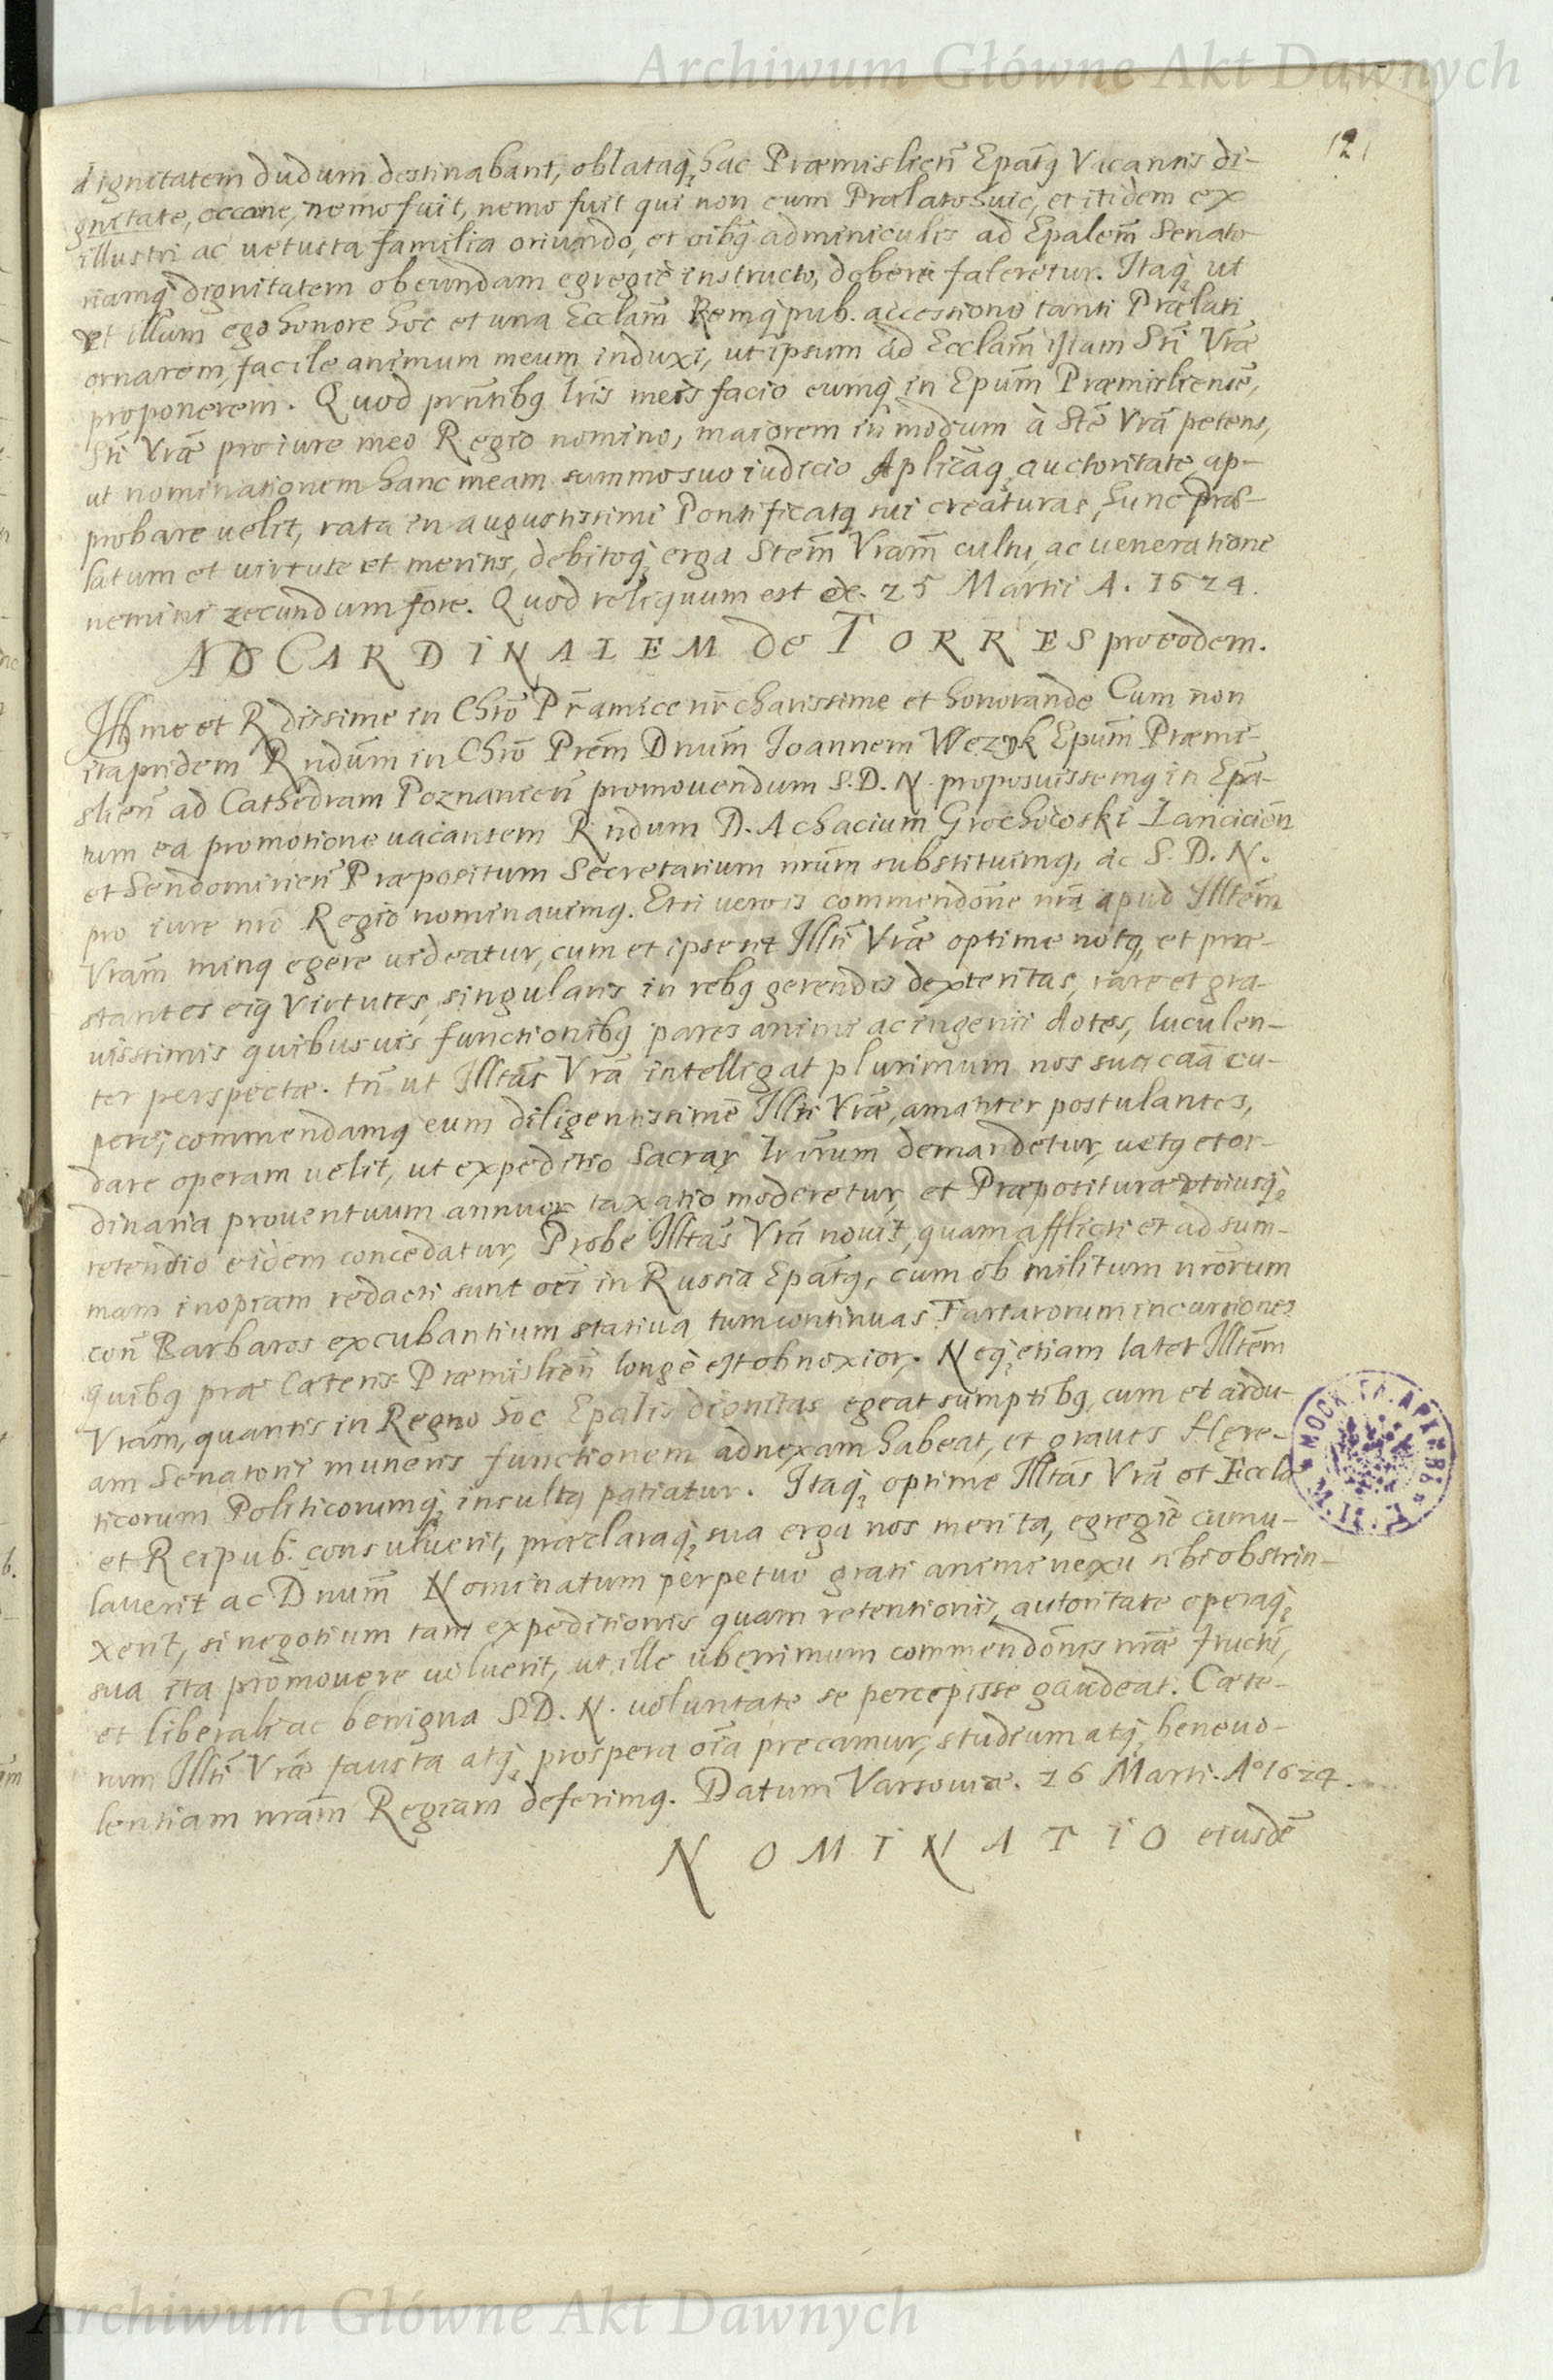 Archiwum Główne Akt Dawnych
121
dignitatem dudum destinabant, oblataq; hac Præmislień Epat9 Vacantis di-
gnitate, occone, nemo fuit, nemo fuit qui non eum Prælato huic, et itidem ex
illustri ac uetusta familia oriundo, et oibq adminiculis ad Epalem̃ Senato-
riamq dignitatem obeundam egregiè instructo, deberi fateretur. Itaq ut
et illum ego honore hoc et una Ecclam̃ Remq pub. accessione tanti Prælati
ornarem, facile animum meum induxi, ut ipsum ad Ecclam̃ istam Stĩ Vræ̃
proponerem. Quod prñtibq lrĩs meis facio eumq in Epum̃ Præmisliensẽ,
Stĩ Vræ̃ pro iure meo Regio nomino, maiorem in modum à Stẽ Vrã petens,
ut nominationem hanc meam summo suo iudicio Aplicaq; auctoritate ap-
probare uelit, rata in augustissimi Pontificatq sui creaturas, hunc Præ-
latum et uirtute et meritis, debitoq; erga Stem̃ Vram̃ cultu, ac ueneratione
nemini secundum fore. Quod reliquum est &c. 25 Martii A. 1624.
AD CARDINALEM de TORRES pro eodem.
Illme et Rdissime in Chrõ Pr̃ amice nr̃ charissime et honorande Cum non
ita pridem Rndum̃ in Chrõ Prem̃ Dnum̃ Joannem Wezyk Epum̃ Præmi-
slień ad Cathedram Poznanień promouendum S.D.N. proposuissemq in Epa-
tum ea promotione uacantem Rndum D. Achacium Grochowski Lancicień
et Sendomirień Præpositum Secretarium nrum̃ substituimq, ac S.D.N.
pro iure nrõ Regio nominauimq. Etsi uero is commendoñe nrã apud Illtem̃
Vram̃ minq egere uideatur, cum et ipse sit Illtĩ Vræ̃ optime notq, et præ-
stantes eiq Virtutes, singularis in rebq gerendis dexteritas, raræ et gra-
uissimis quibusuis functionibq pares animi ac ingenii dotes, luculen-
ter perspectæ. tñ ut Illtas̃ Vrã intelligat plurimum nos sua caã cu-
pere, commendamq eum diligentissimè Illtĩ Vræ̃, amanter postulantes,
dare operam uelit, ut expeditio Sacrar lrarum demandetur, uetq et or-
dinaria prouentuum annuor taxatio moderetur, et Præpositura utriusq;
retentio eidem concedatur, Probe Illtas̃ Vrã nouit, quam afflicti et ad sum-
mam inopiam redacti sunt oẽs in Russia Epatq, cum ob militum nrõrum
coñ Barbaros excubantium statiua, tum continuas Tartarorum incursiones
quibq præ cæteris Præmislień longè est obnoxior. Neq; etiam latet Illtem̃
Vram, quantis in Regno hoc Epalis dignitas egeat sumptibq, cum et ardu-
am Senatorii muneris functionem adnexam habeat, et graues Hęre-
ticorum Politicorumq; insultq patiatur. Itaq; optime Illtas̃ Vrã et Eccla
et Reipub. consuluerit, præclaraq; sua erga nos merita, egregiè cumu-
lauerit ac Dnum̃ Nominatum perpetuo grati animi nexu sibi obstrin-
xerit, si negotium tam expeditionis quam retentionis, autoritate operaq;
sua ita promouere uoluerit, ut ille uberrimum commendõnis nræ̃ fructũ,
et liberali ac benigna S.D.N. uoluntate se percepisse gaudeat. Cæte-
rum Illtĩ Vræ̃ fausta atq; prospera oĩa precamur, studium atq; beneuo-
lentiam nram̃ Regiam deferimq. Datum Varsouiæ. 26 Marti. Aº 1624.
NOMINATIO eiusdẽ
Archiwum Główne Akt Dawnych